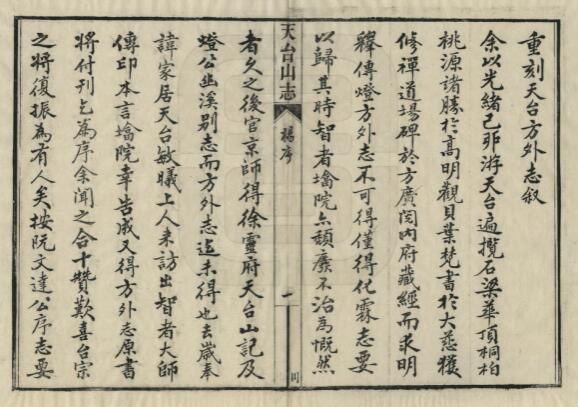 重刻天台方外志叙
余以光緒己卯游天台遍攬石梁華頂桐柏
桃源諸勝於高明觀貝葉梵書於大慈獲
修禪道場碑於方廣閱内府藏經而求明
釋傳燈方外志不可得僅得化霖志要
以歸其時智者墖院亦頹廢不治爲慨然
天台山志
楊序
一
者久之後官京師得徐靈府天台山記及
燈公幽溪别志而方外志迄未得也去歲奉
諱家居天台敏曦上人来訪出智者大師
傳印本言墖院幸告成又得方外志原書
將付刊乞爲序余聞之合十贊歎喜台宗
之將復振爲有人矣按阮文達公序志要